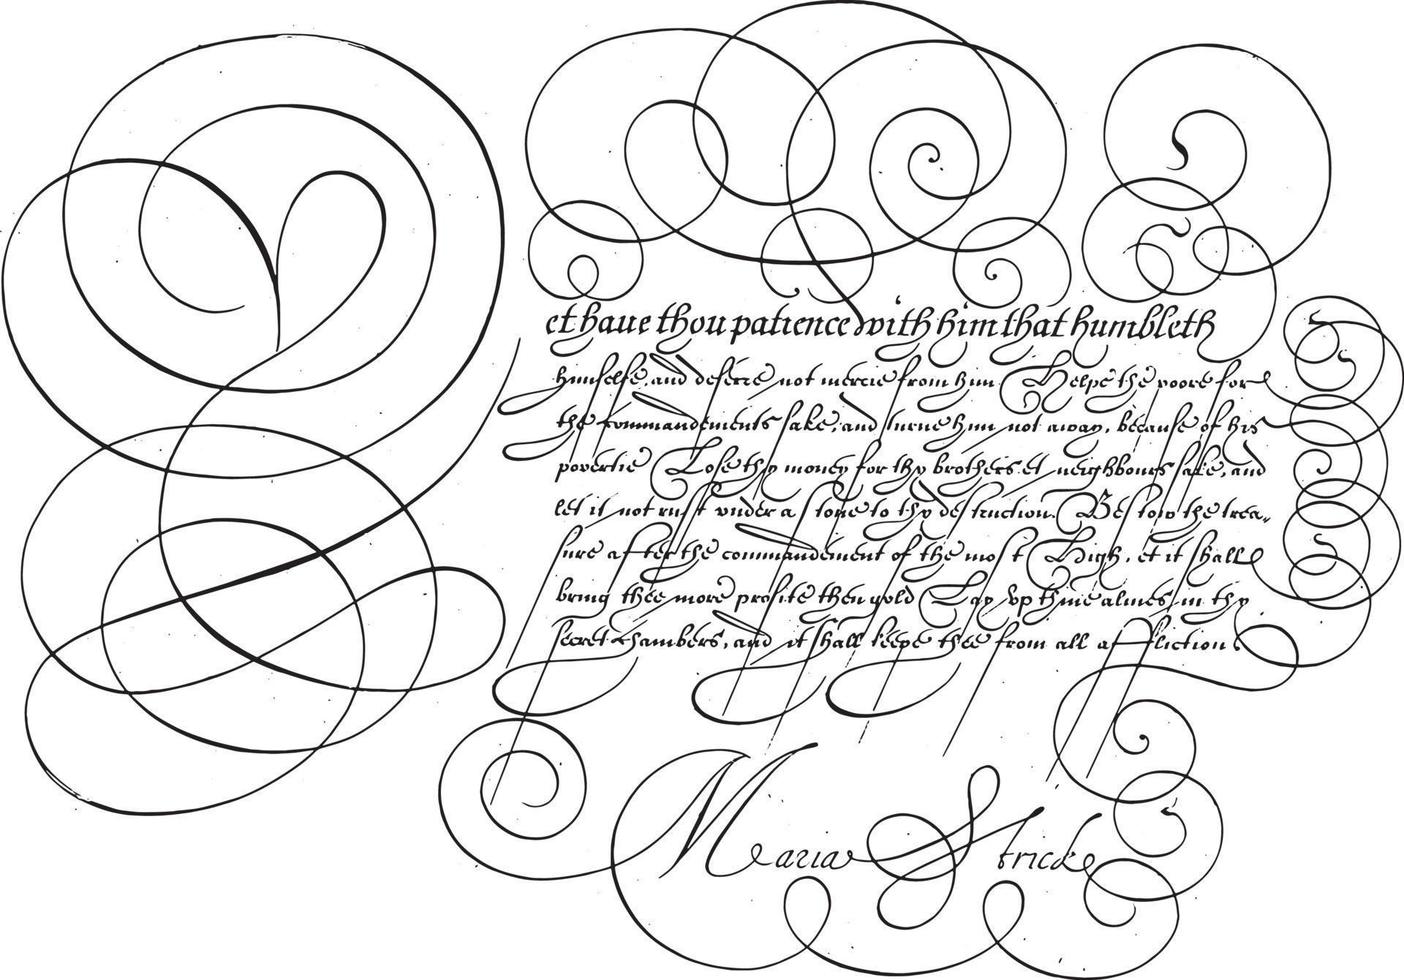 Yet haue thou patience with him that humbleth
himselfe, and deferre not mercie from him. Helpe the poore for
the commandements sake, and turne him not away, because of his
povertie Lose thy money for thy brothers et neighbours sake, and
let it not rust under a stone to thy destruction. Bestow the trea-
sure after the commandement of the most High, et it shall
bring thee more profite then gold Lay vp thine almes in thy
secret chambers, and it shall keepe thee from all affliction
Maria Strick